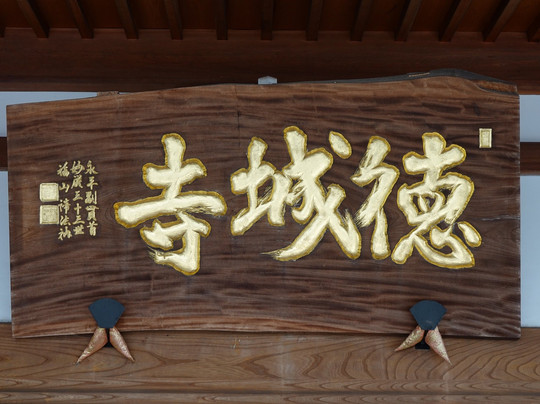 徳城寺
永平副貫首
妙厳三十三世
福山諦法衲